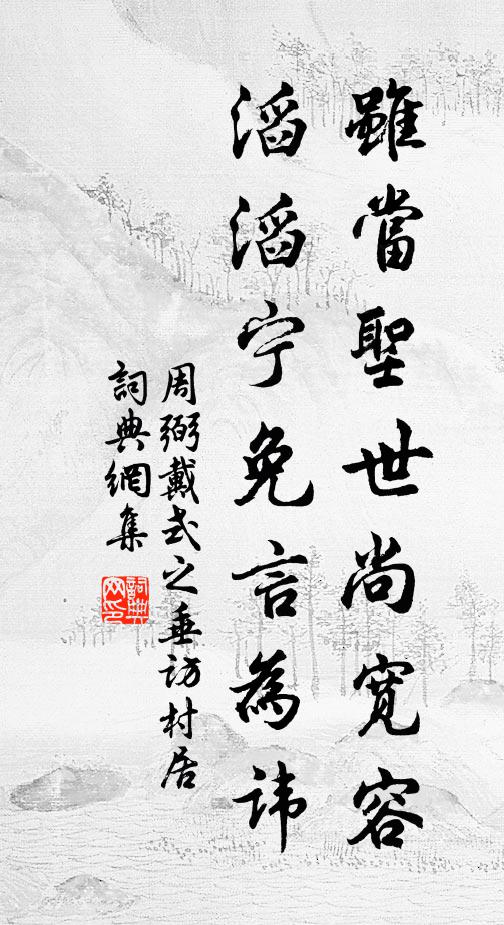 雖當聖世尚寬容
滔滔宁免言為諱
周弼戴式之垂访村居
詞典網集